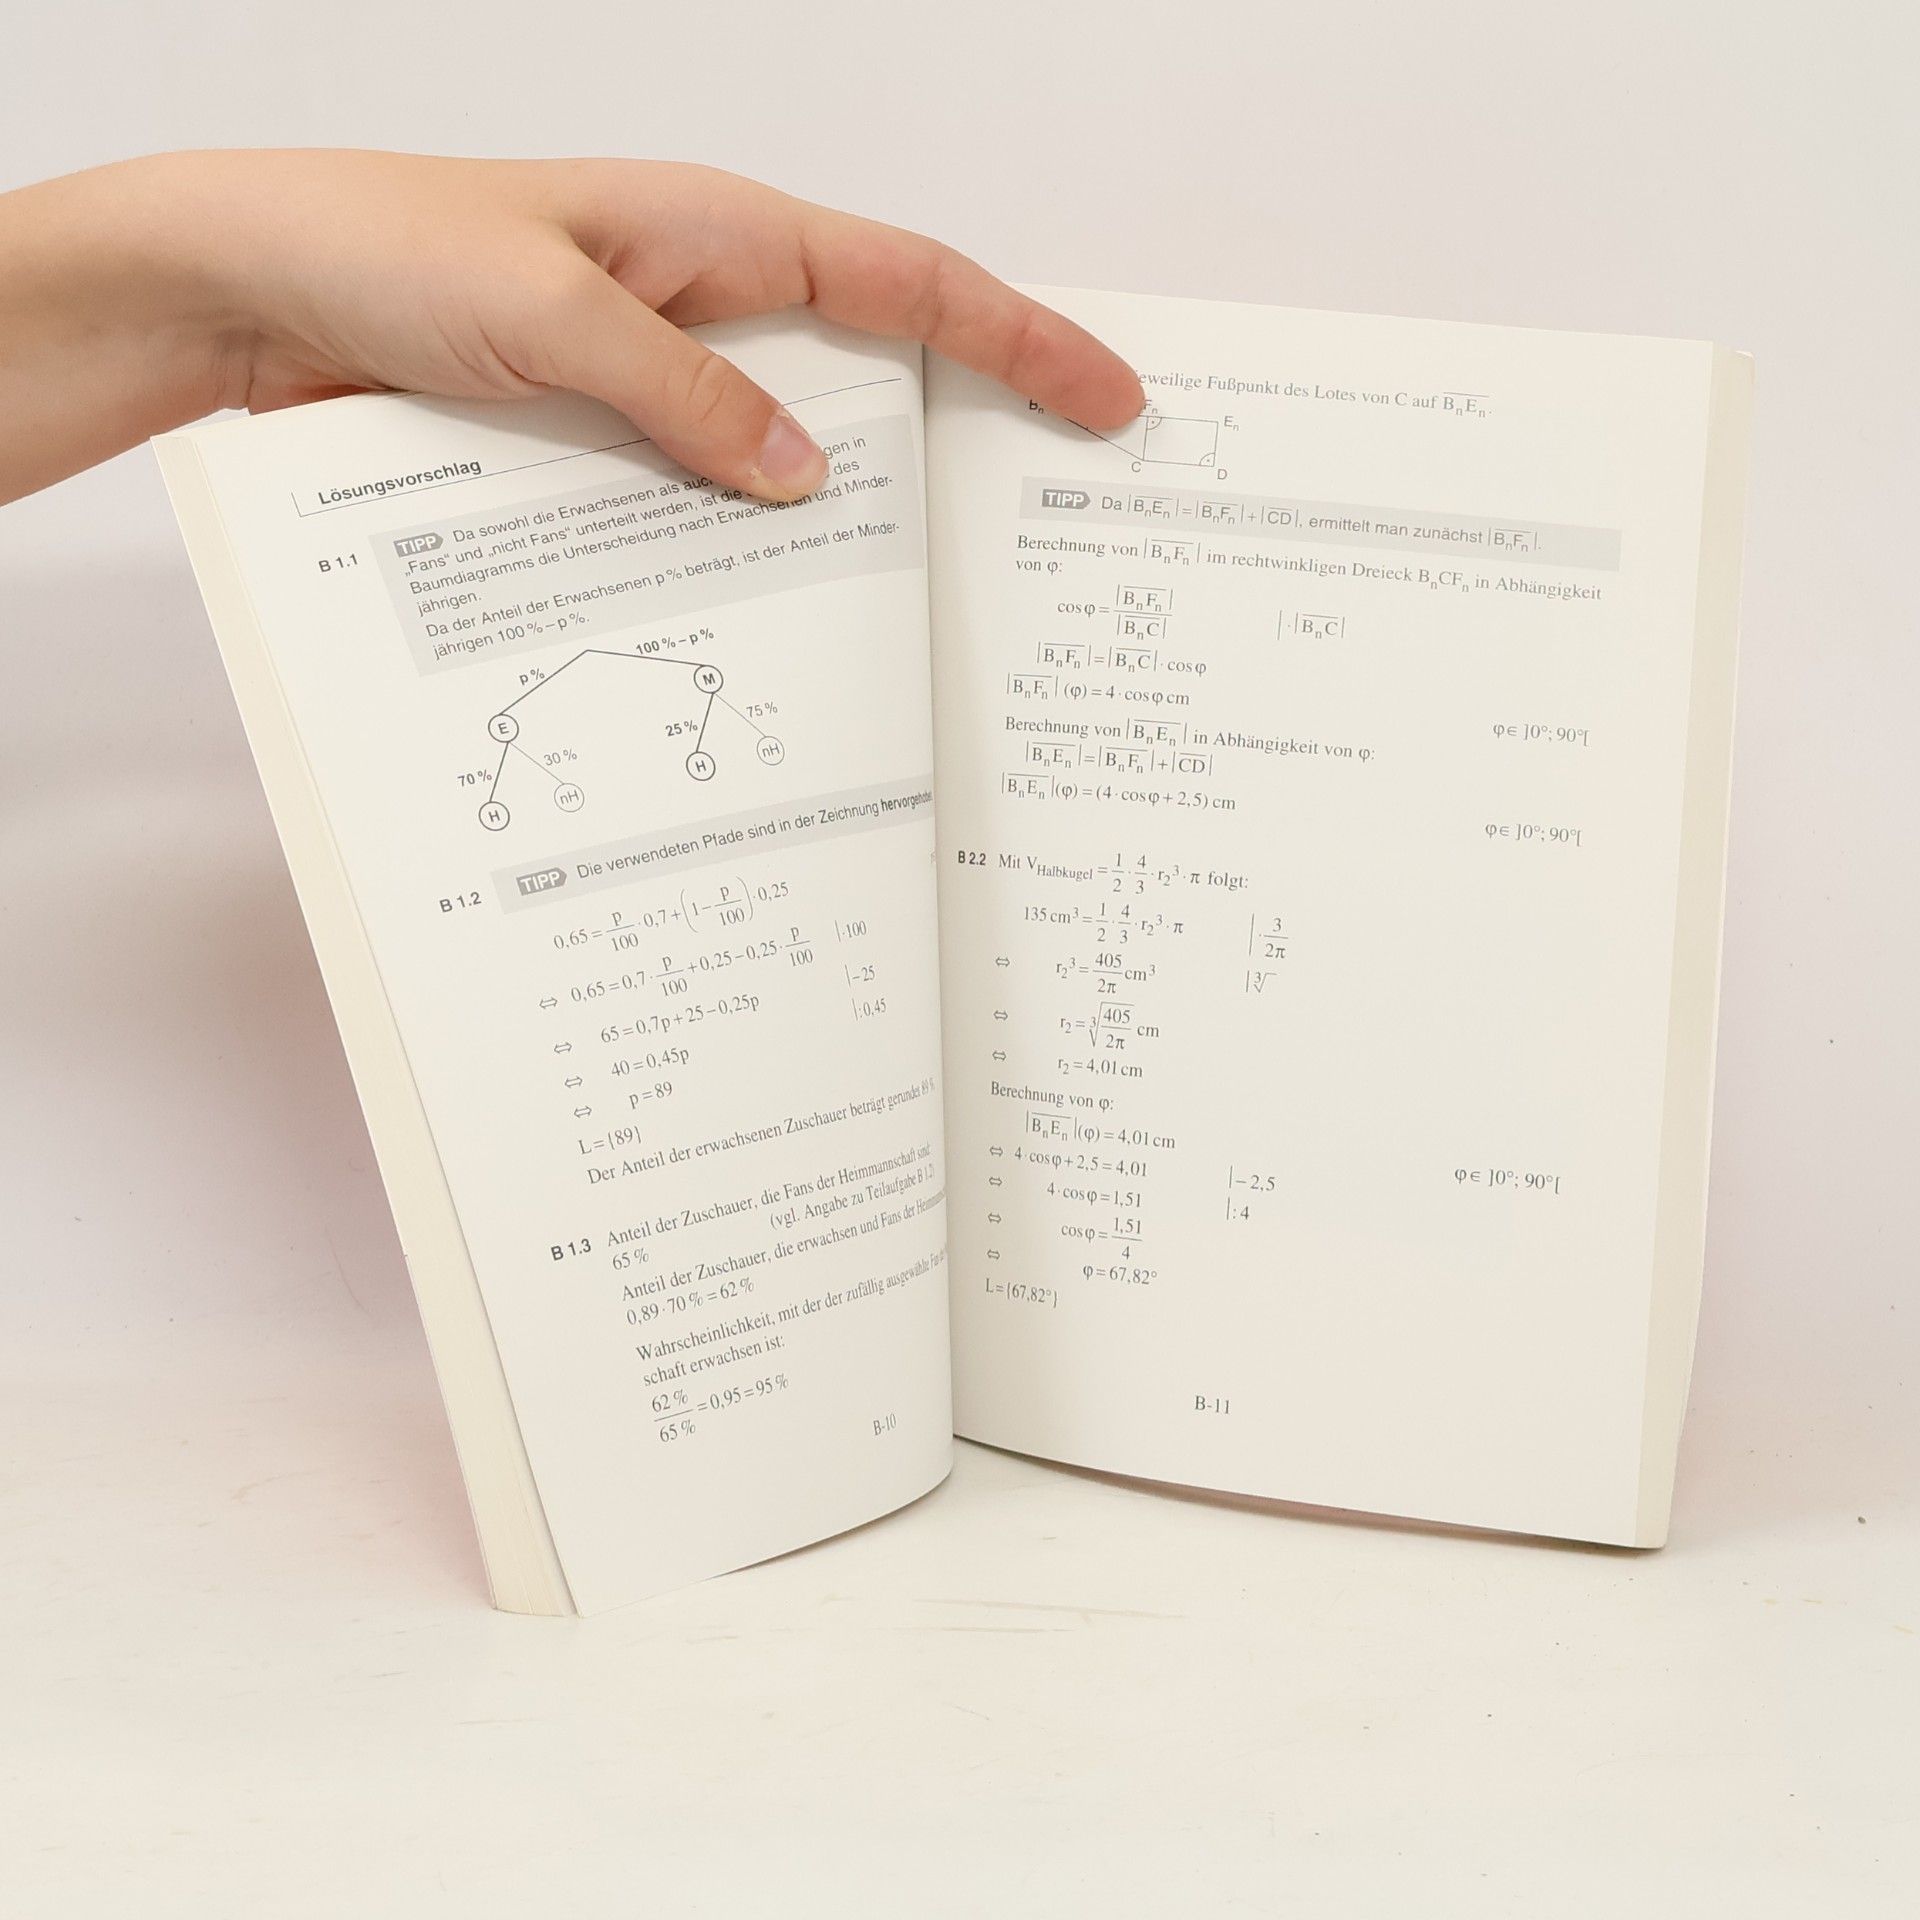 Lösungsvorschlag
B 1.1 TIPP Da sowohl die Erwachsenen als gen in
„Fans“ und „nicht Fans“ unterteilt werden, ist die des
Baumdiagramms die Unterscheidung nach Erwachsenen und Minder-
jährigen.
Da der Anteil der Erwachsenen p % beträgt, ist der Anteil der Minder-
jährigen 100 % – p %.
p % 100 % – p %
E M
70 % 30 % 25 % 75 %
H nH H nH
B 1.2 TIPP Die verwendeten Pfade sind in der Zeichnung
0,65 = p/100 · 0,7 + (1 – p/100) · 0,25
⇔ 0,65 = 0,7 · p/100 + 0,25 – 0,25 · p/100 | · 100
⇔ 65 = 0,7p + 25 – 0,25p | – 25
⇔ 40 = 0,45p | : 0,45
⇔ p = 89
L = {89}
Der Anteil der erwachsenen Zuschauer beträgt gerundet 89 %
B 1.3 Anteil der Zuschauer, die Fans der Heimmannschaft sind:
65 % (vgl. Angabe zu Teilaufgabe B 1.2)
Anteil der Zuschauer, die erwachsen und Fans der
0,89 · 70 % = 62 %
Wahrscheinlichkeit, mit der der zufällig ausgewählte
schaft erwachsen ist:
62 %/65 % = 0,95 = 95 %
B-10
jeweilige Fußpunkt des Lotes von C auf BₙEₙ.
Bₙ Fₙ Eₙ
C D
TIPP Da |BₙEₙ| = |BₙFₙ| + |CD|, ermittelt man zunächst |BₙFₙ|.
Berechnung von |BₙFₙ| im rechtwinkligen Dreieck BₙCFₙ in Abhängigkeit
von φ:
cos φ = |BₙFₙ|/|BₙC| | · |BₙC|
|BₙFₙ| = |BₙC| · cos φ
|BₙFₙ| (φ) = 4 · cos φ cm φ ∈ ]0°; 90°[
Berechnung von |BₙEₙ| in Abhängigkeit von φ:
|BₙEₙ| = |BₙFₙ| + |CD|
|BₙEₙ|(φ) = (4 · cos φ + 2,5) cm φ ∈ ]0°; 90°[
B 2.2 Mit V_Halbkugel = 1/2 · 4/3 · r₂³ · π folgt:
135 cm³ = 1/2 · 4/3 · r₂³ · π | · 3/2π
⇔ r₂³ = 405/2π cm³ | ∛
⇔ r₂ = ∛(405/2π) cm
⇔ r₂ = 4,01 cm
Berechnung von φ:
|BₙEₙ|(φ) = 4,01 cm
⇔ 4 · cos φ + 2,5 = 4,01 | – 2,5 φ ∈ ]0°; 90°[
⇔ 4 · cos φ = 1,51 | : 4
⇔ cos φ = 1,51/4
⇔ φ = 67,82°
L = {67,82°}
B-11